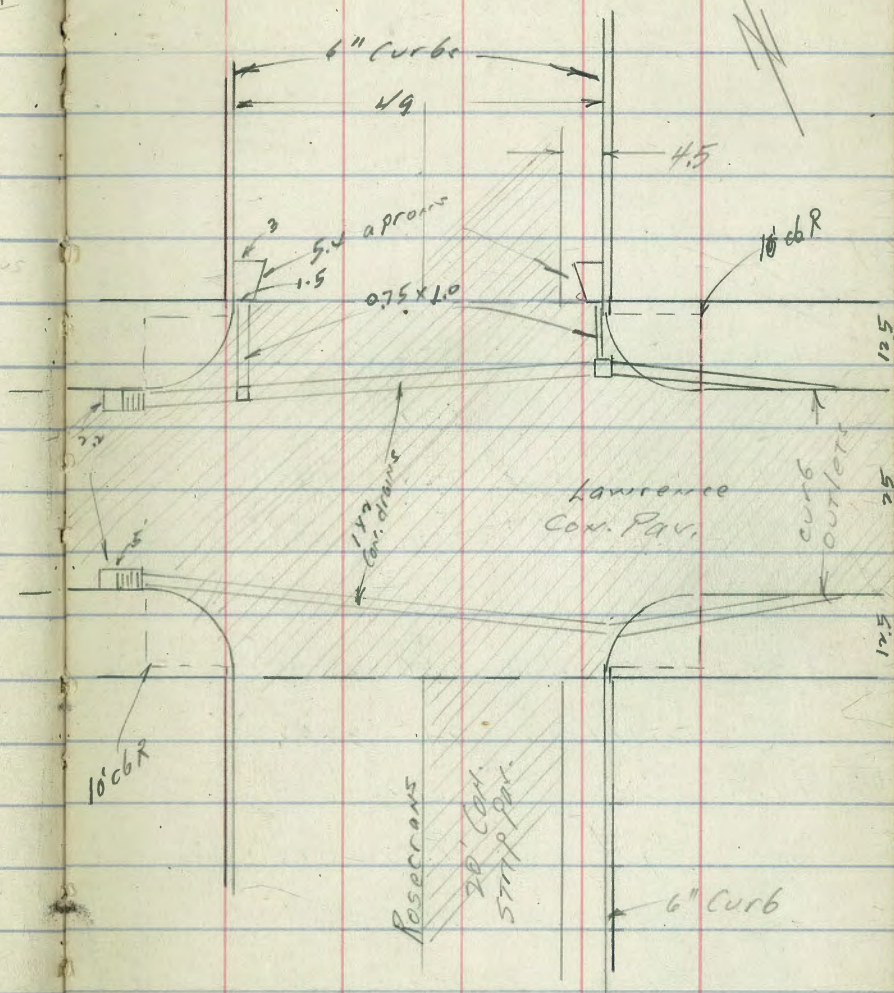 6" Curbs
49
4.5
3
5.4 aprons
1.5
0.75 x 1.0
10' cb R
12.5
2.2
5.
1 x 2
Con. drains
Lawrence
Con. Pav.
curb
outlets
25
12.5
10' cb R
Rosecrans
20' Con.
Strip Pav.
6" Curb